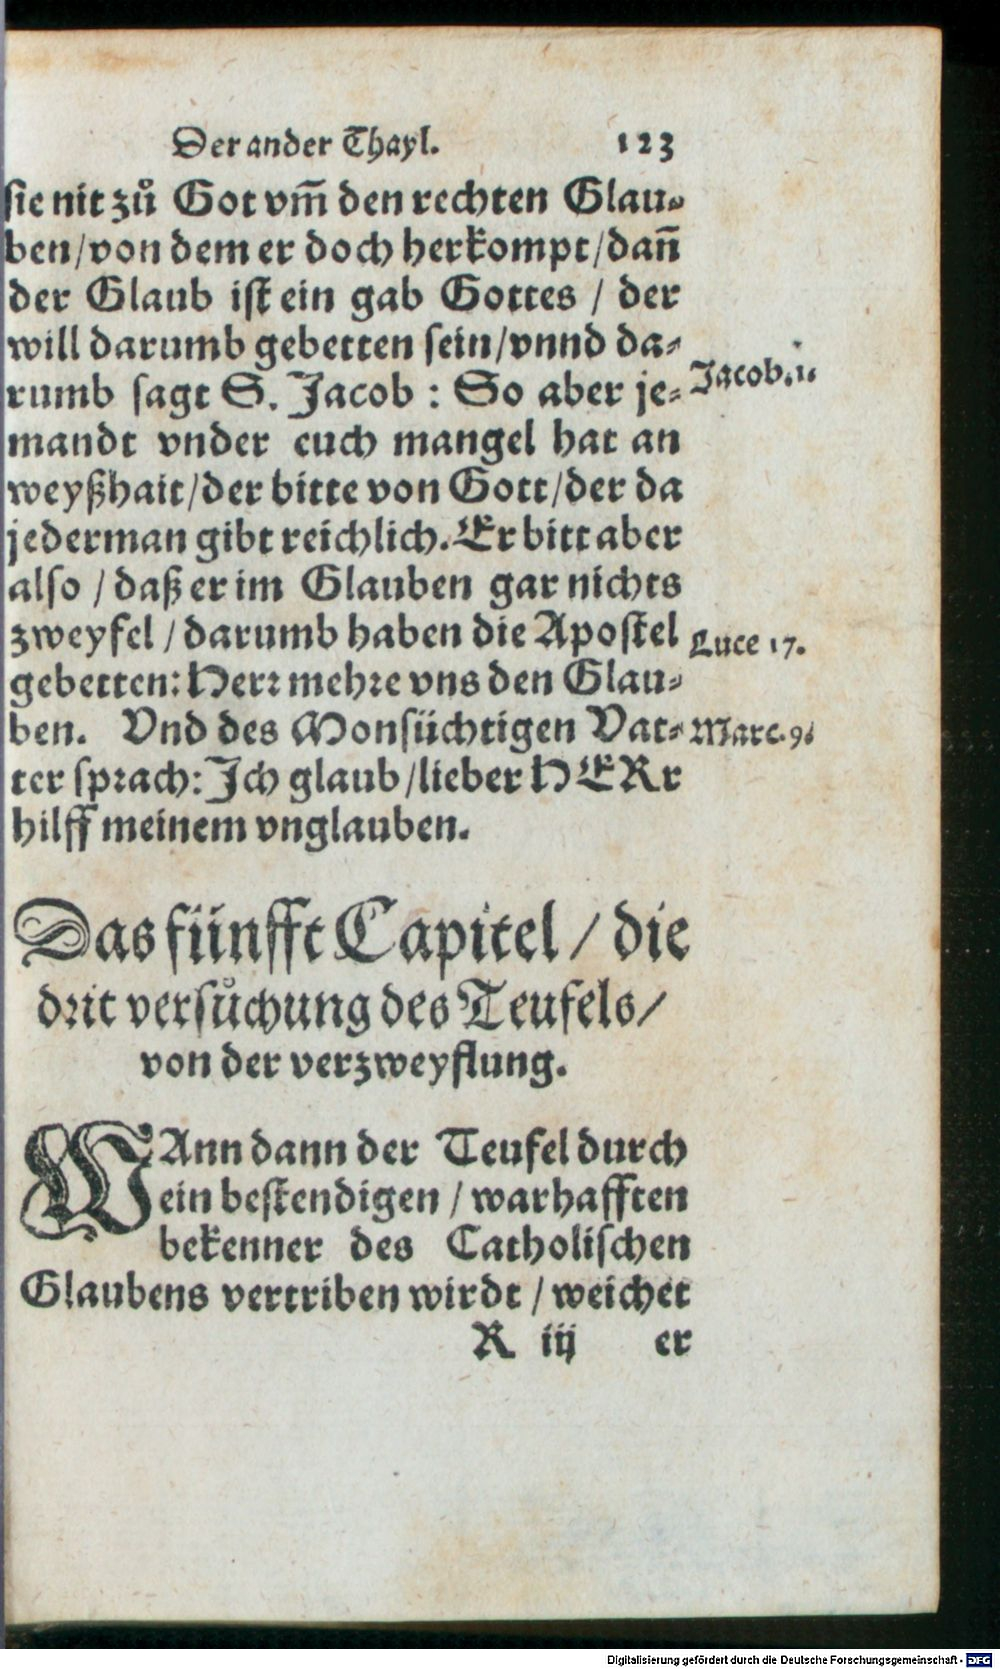 Der ander Thayl. 123
sie nit zů Got vm̃ den rechten Glau⸗
ben/von dem er doch herkompt/dañ
der Glaub ist ein gab Gottes / der
will darumb gebetten sein/vnnd da⸗
rumb sagt S. Jacob : So aber je⸗
Jacob.1.
mandt vnder euch mangel hat an
weyßhait/der bitte von Gott/der da
jederman gibt reichlich. Er bitt aber
also / daß er im Glauben gar nichts
zweyfel / darumb haben die Apostel
Luce 17.
gebetten: Herr mehre vns den Glau⸗
ben. Vnd des Monsüchtigen Vat⸗
Marc.9.
ter sprach: Ich glaub/lieber HERr
hilff meinem vnglauben.
Das fünfft Capitel / die
drit versůchung des Teufels/
von der verzweyflung.
WAnn dann der Teufel durch
ein bestendigen / warhafften
bekenner des Catholischen
Glaubens vertriben wirdt / weichet
R iij er
Digitalisierung gefördert durch die Deutsche Forschungsgemeinschaft - DFG